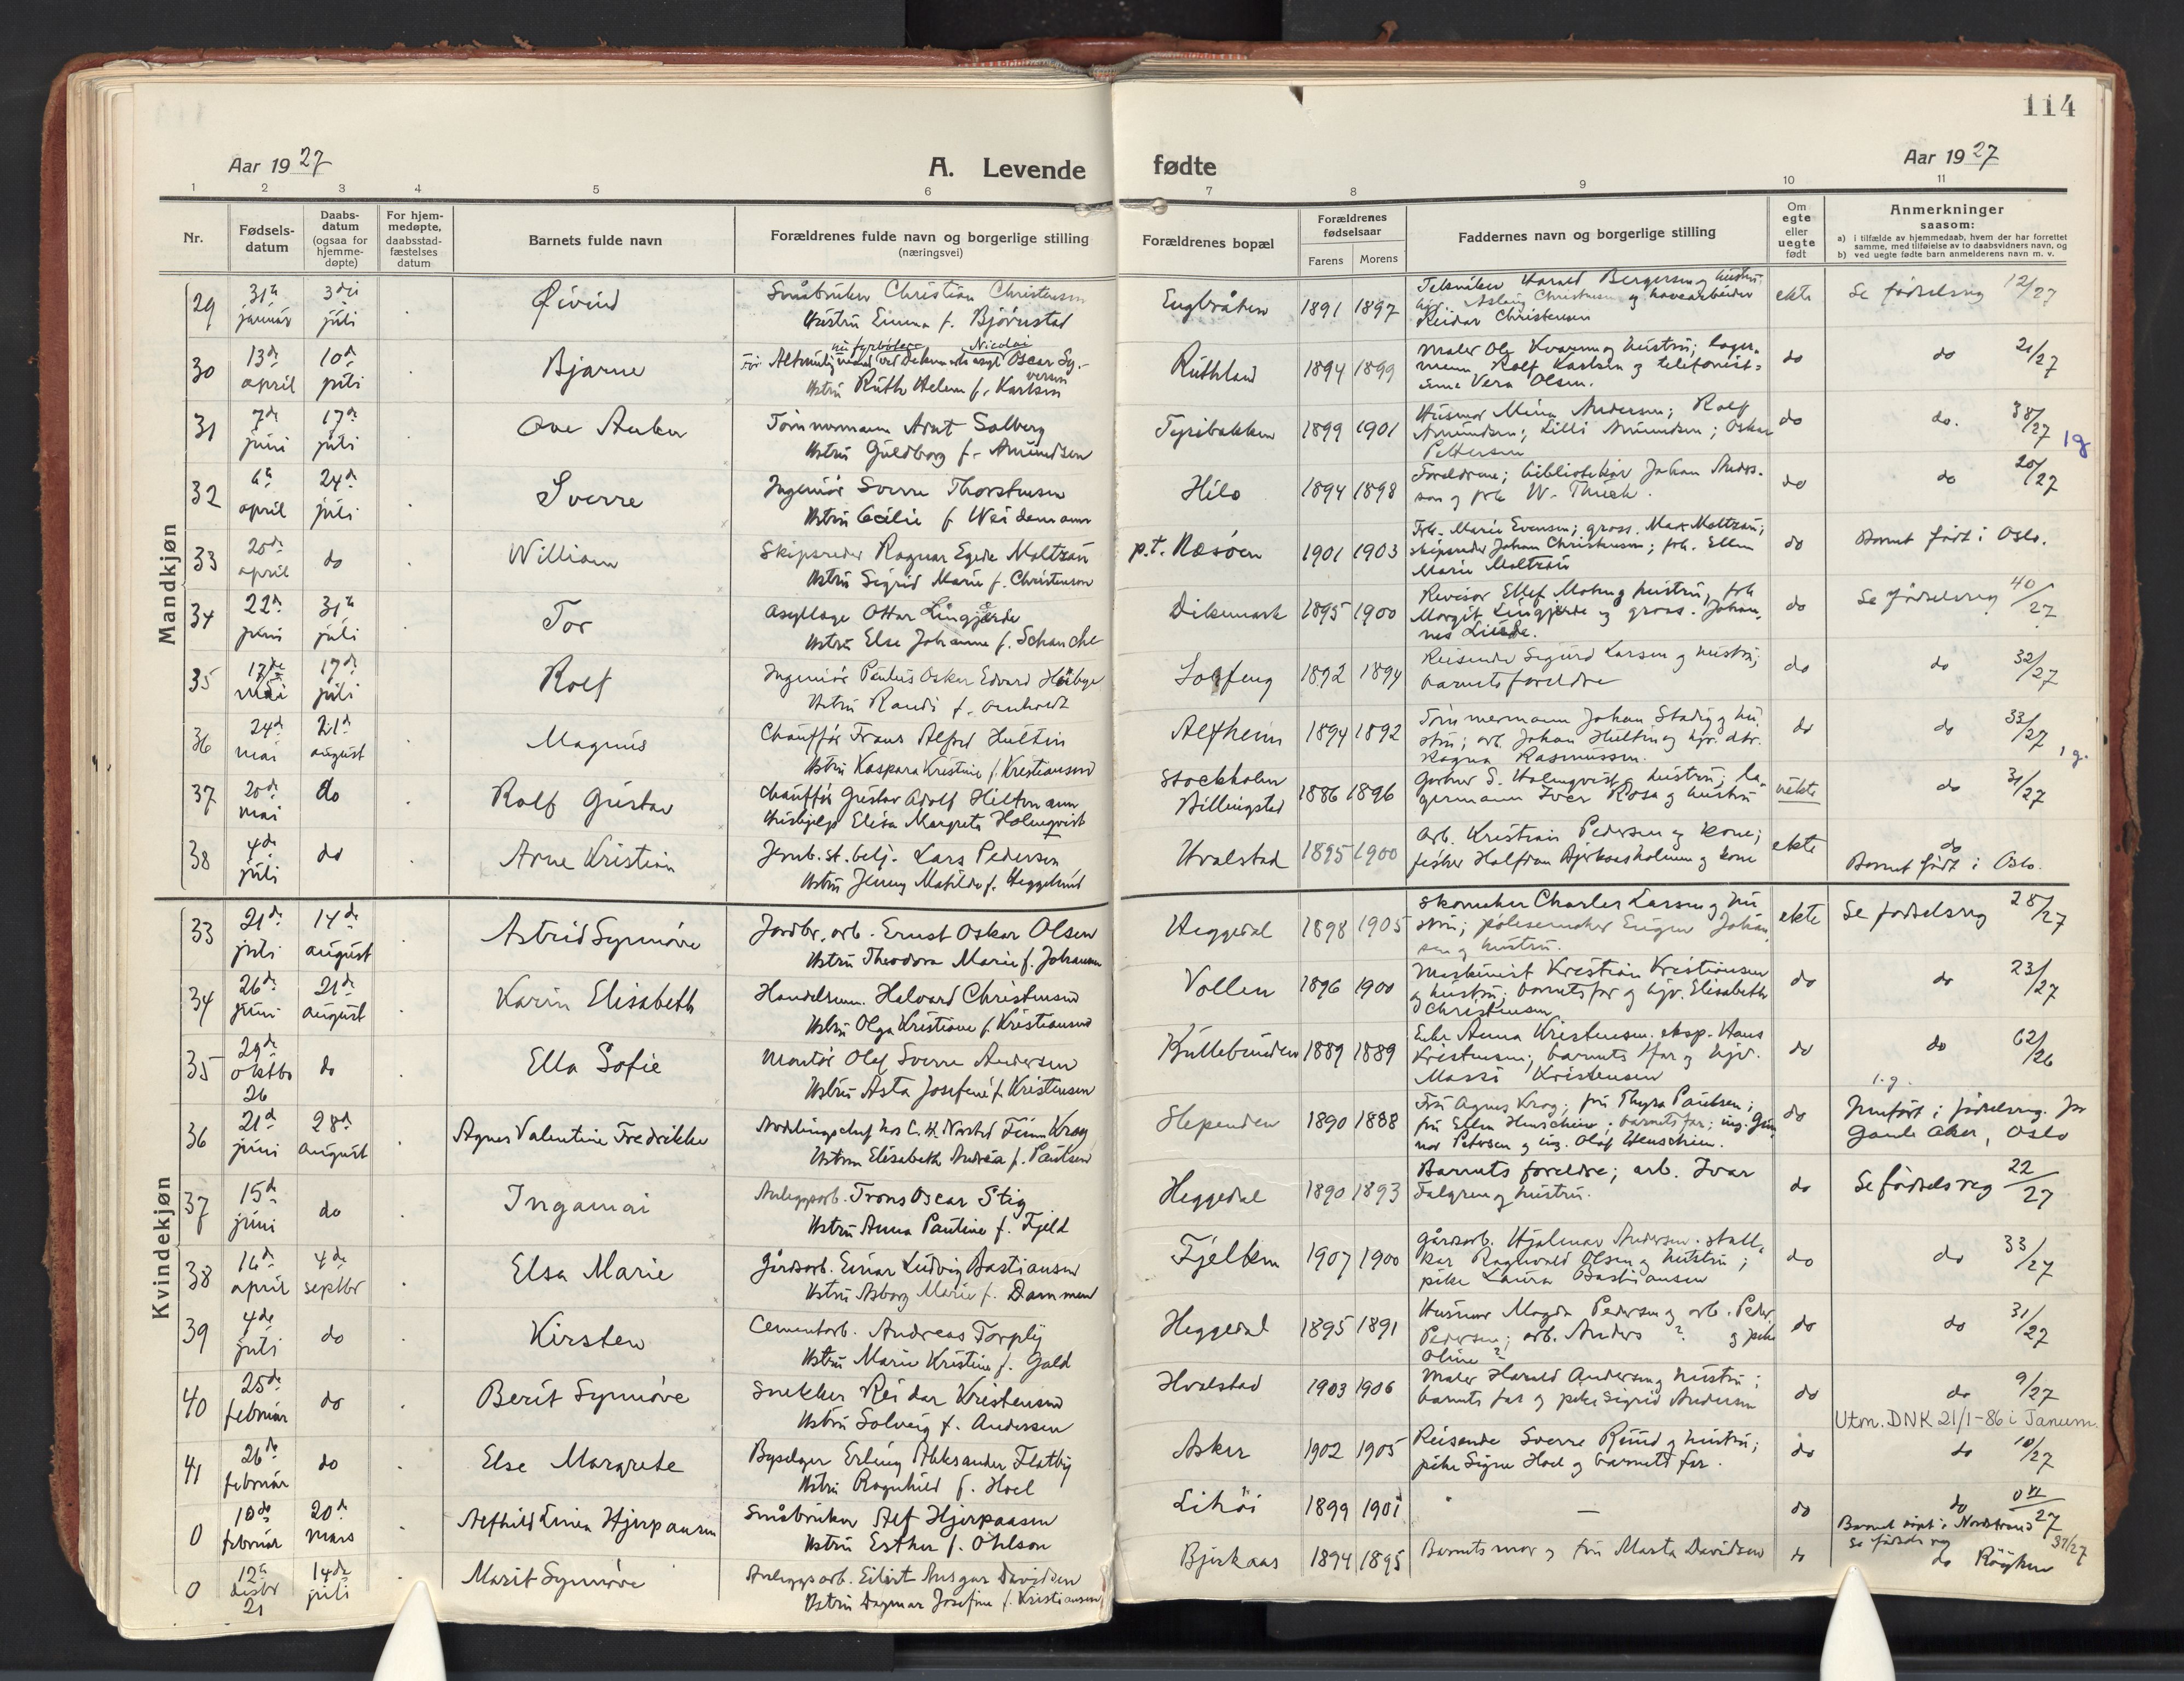 114
Aar 1927
A. Levende fødte
Aar 1927
1 2 3 4 5 6 7 8 9 10 11
Nr.
Fødsels-
datum
Daabs-
datum
(ogsaa for
hjemme-
døpte)
For hjem-
medøpte,
daabsstad-
fæstelses
datum
Barnets fulde navn
Forældrenes fulde navn og borgerlige stilling
(næringsvei)
Forældrenes bopæl
Forældrenes
fødselsaar
Farens Morens
Faddernes navn og borgerlige stilling
Om
egte
eller
uegte
født
Anmerkninger
saasom:
a) i tilfælde av hjemmedaab, hvem der har forrettet
samme, med tilføielse av to daabsvidners navn, og
b) ved uegte fødte barn anmelderens navn m. v.
Mandkjøn
29 31te januar 3die juli Øivind
Småbruker Christian Christensen
Hustru Emma f. Bjørnstad
Engbråten 1891 1897
Harald Bergersen og hustru;
Reidar Christensen
ekte Se fødselsreg 12/27
30 13de april 10de juli Bjarne
Nicolai
Oscar Sy-
versen
Hstru Ruth Helene f. Karlsen
Ruthland 1894 1899
Maler Ole Kvarum og hustru; lager-
mann Rolf Karlsen og telefonist-
inne Vera Olsen.
do do 21/27
31 7de juni 17de juli
Tømmermann Arnt Solberg
Hstru Guldborg f. Amundsen
Tyribakken 1899 1901
Husmor Mina Andersen; Rolf
Amundsen; Lilli Amundsen; Oskar
Pettersen
do do. 38/27 1g
32 6te april 24de juli Sverre
Ingeniør Sverre Thorstensen
Hstru Cecilie f. Weidemann
Hilo 1894 1898
Foreldrene; bibliotekar Johan
og frk W.
do do 20/27
33 20de april do William
Skipsreder Ragnar Egede Moltzau
Hstru Sigrid Marie f. Christensen
p.t. Næsøen 1901 1903
Frk. Marie Evensen; gross. Max Moltzau;
skipsreder Johan Christensen; frk. Ellen
Marie Moltzau
do Barnet født i Oslo.
34 22de juni 31te juli Tor
Asyllæge Ottar Lingjærde
Hstru Else Johanne f. Schanche
Dikemark 1895 1900
Revisor Ellef Mohn og hustru, frk
Margit Lingjærde og gross. Johan-
nes
do Se fødselsreg 40/27
35 17de mai 17de juli Rolf
Ingeniør Paulus Oskar Edvard
Hstru Randi f.
Solfeng 1892 1894
Reisende Sigurd Larsen og hustru;
barnets foreldre
do do 32/27
36 24de mai 21de august Magnus
Chauffør Frans Alfred Hultin
Hstru Kaspara Kristine f. Kristiansen
Alfheim 1894 1892
Tømmermann Johan Stadig og hu-
stru; arb. Johan Hultin og hjv. dtr.
Ragna Rasmussen.
do do 33/27 1g.
37 20de mai do Rolf Gustav
Chauffør Gustav Adolf Hiltmann
Hushjelp Elisa Margreta Holmqvist
Stockholm
Billingstad 1886 1896
Gartner S. Holmqvist og hustru; la-
germann Iver Rosa og hustru
uekte do 31/27
38 4de juli do Arne Kristian
Jernb. st. betj. Lars Pedersen
Hstru Jenny Matilde f. Heggelund
Hvalstad 1895 1900
Arb. Kristian Pedersen og kone;
fisker Halfdan Bjerkaasholmen og kone
ekte do
Barnet født i Oslo.
Kvindekjøn
33 21de juli 14de august Astrid Synnøve
Jordbr. arb. Ernst Oskar Olsen
Hstru Theodora Marie f. Johansen
Heggedal 1898 1905
Skomaker Charles Larsen og hu-
stru; pølsemaker Eugen Johan-
sen og hustru.
ekte Se fødselsreg 28/27
34 26de juni 21de august Karin Elisabeth
Handelsm. Halvard Christensen
Hstru Olga Kristiane f. Kristiansen
Vollen 1896 1900
Maskinist Kristian Kristiansen
og hustru; barnets far og hjv. Elisabeth
Christensen
do do 23/27
35 29de oktbr 26 do Ella Sofie
Montør Olaf Sverre Andersen
Hstru Asta Josefine f. Kristensen
Kullebunden 1889 1889
Enke Anna Kristensen. eksp. Hans
Kristensen; barnets far og hjv.
Massi Kristensen
do do 62/26
1.g.
36 21de juni 28de august Agnes Valentine Fredrikke
Avdelingschef hos C. H. Finn Krog
Hstru Elisabeth Andrea f. Paulsen
Slependen 1890 1888
Fru Agnes Krog; fru Thyra Paulsen;
fru Ellen Henschien; barnets far; ing. Gun-
nar Petersen og ing. Olaf Henschien.
do Innført i fødselsreg. for
Gamle Aker, Oslo
37 15de juni do Ingamai
Anleggsarb. Frans Oscar Stig
Hstru Anna Pauline f. Fjeld
Heggedal 1890 1893
Barnets foreldre; arb. Ivar
Falgren og hustru.
do Se fødselsreg 22/27
38 16de april 4de septbr Elsa Marie
Gårdsarb. Einar Ludvig Bastiansen
Hstru Asborg Marie f. Dammen
Fjeltom 1907 1900
Gårdsarb. Hjalmar Andersen. stall-
kar Ragnvald Olsen og hustru;
pike Laura Bastiansen
do do 33/27
39 4de juli do Kirsten
Cementarb. Andreas Torply
Hstru Marie Kristine f. Gald
Heggedal 1895 1891
Husmor Magda Pedersen og arb. Peder
Pedersen; arb. Anders ? og pike
Oline ?
do do 31/27
40 25de februar do Berit Synnøve
Snekker Reidar Kristensen
Hstru Solveig f. Andersen
Hvalstad 1903 1906
Maler Harald Andersen og hustru;
barnets far og pike Sigrid Andersen
do do 9/27
Utm. DNK 21/1-86 i Tanum.
41 26de februar do Else Margrete
Byselger Erling Aleksander Flatby
Hstru Ragnhild f. Hoel
Asker 1902 1905
Reisende Sverre Ruud og hustru;
pike Signe Hoel og barnets far.
do do 10/27
0 10de februar 20de mars Alfhild Linea Hjerpaasen
Småbruker Alf Hjerpaasen
Hstru Esther f. Ohlson
Lihøi 1899 1901
—
do do
Barnet døpt i Nordstrand
0 12te desbr 21 14de juli Marit Synnøve
Anleggsarb. Eilert Ansgar Davidsen
Hstru Dagmar Josefine f. Kristiansen
Bjerkaas 1894 1895
Barnets mor og fru Marta Davidsen
do Se fødselsreg 37/27
do Røyken